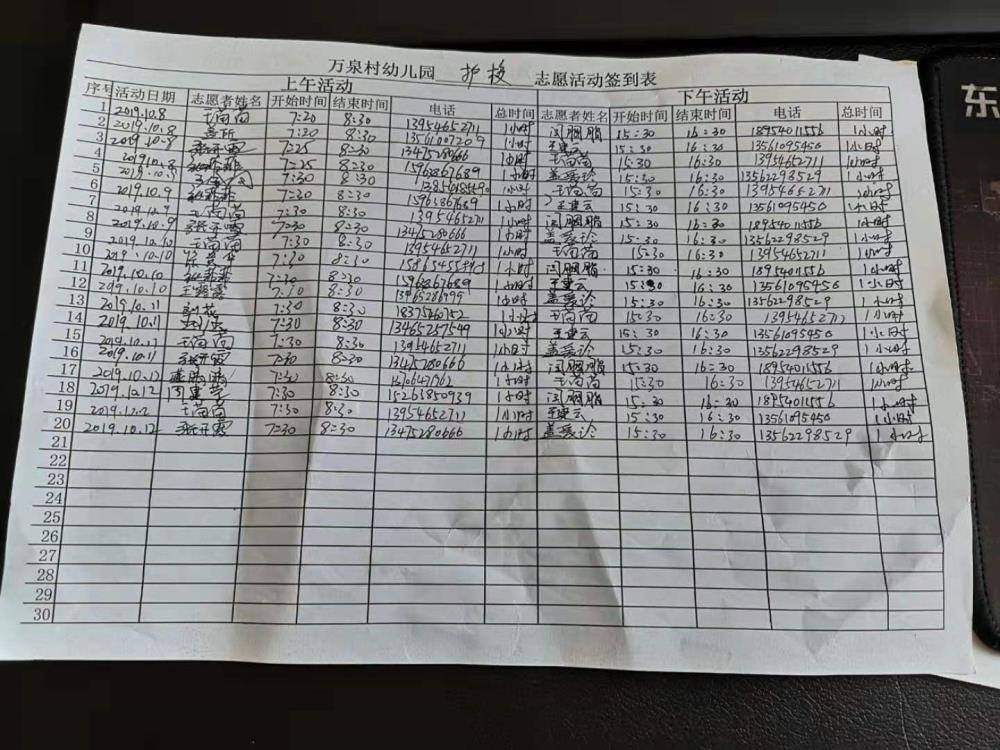 万泉村幼儿园 护校 志愿活动签到表
上午活动 下午活动
序号 活动日期 志愿者姓名 开始时间 结束时间 电话 总时间 志愿者姓名 开始时间 结束时间 电话 总时间
1 2019.10.8 王尚尚 7:20 8:30 13954652711 1小时 闫胭脂 15:30 16:30 18954011556 1小时
2 2019.10.8 7:20 8:30 1小时 王建云 15:30 16:30 13561095450 1小时
3 2019.10.8 7:25 8:30 13475280666 1小时 王尚尚 15:30 16:30 13954652711 1小时
4 2019.10.8 7:25 8:30 15963867689 1小时 盖爱诊 15:30 16:30 13562298529 1小时
5 2019.10.9 7:30 8:30 1小时 王尚尚 15:30 16:30 13954652711 1小时
6 2019.10.9 7:30 8:30 15963867689 1小时 王建云 15:30 16:30 13561095450 1小时
7 2019.10.9 王尚尚 7:30 8:30 13954652711 1小时 闫胭脂 15:30 16:30 18954011556 1小时
8 2019.10.9 张开霞 7:30 8:30 13475280666 1小时 盖爱诊 15:30 16:30 13562298529 1小时
9 2019.10.10 王尚尚 7:30 8:30 13954652711 1小时 王尚尚 15:30 16:30 13954652711 1小时
10 2019.10.10 7:30 8:30 1小时 闫胭脂 15:30 16:30 18954011556 1小时
11 2019.10.10 7:30 8:30 15963867689 1小时 王建云 15:30 16:30 13561095450 1小时
12 2019.10.10 8:30 1小时 盖爱诊 15:30 16:30 13562298529 1小时
13 2019.10.11 7:30 8:30 1小时 王尚尚 15:30 16:30 13954652711 1小时
14 2019.10.11 7:30 8:30 13465257549 1小时 王建云 15:30 16:30 13561095450 1小时
15 2019.10.11 王尚尚 7:30 8:30 13954652711 1小时 盖爱诊 15:30 16:30 13562298529 1小时
16 2019.10.11 张开霞 7:30 8:30 13475280666 1小时 闫胭脂 15:30 16:30 18954011556 1小时
17 2019.10.12 7:30 8:30 1小时 王尚尚 15:30 16:30 13954652711 1小时
18 2019.10.12 7:30 8:30 15263850939 1小时 闫胭脂 15:30 16:30 18954011556 1小时
19 王尚尚 7:30 8:30 13954652711 1小时 王建云 15:30 16:30 13561095450 1小时
20 2019.10.12 张开霞 7:30 8:30 13475280666 1小时 盖爱诊 15:30 16:30 13562298529 1小时
21
22
23
24
25
26
27
28
29
30
东